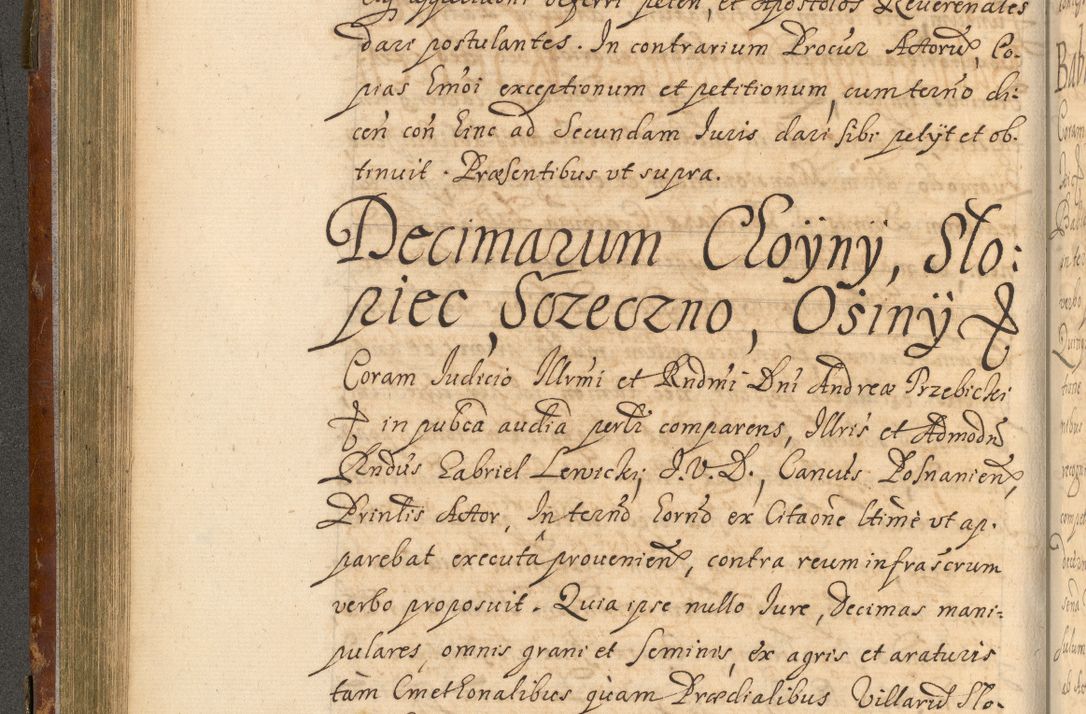 dari postulantes. In contrarium Procur Actorũ, Co-
pias hmõi exceptionum et petitionum, cum termõ di:
cen con hinc ad Secundam Iuris dari sibi petÿt et ob-
tinuit. Præsentibus vt supra.
Decimarum Choÿnÿ, Sło:
piec, Szczeczno, Osinÿ
Coram Iudicio Illrmi et Rndmi Dni Andreæ Przebicki
in pubca audia perlr comparens, Illris et Admodũ
Rndus Gabriel Lewicki, I.V.D., Cancus Posnanien,
Printis Actor, In termõ horno ex Citaõne ltime vt ap-
parebat executa provenien, contra reum infrascrum
verbo proposuit. Quia ipse nullo Iure, decimas mani:
pulares, omnis grani et Seminis, ex agris et araturis
tàm Cmethonalibus quam Prædialibus Villarũ Sło-